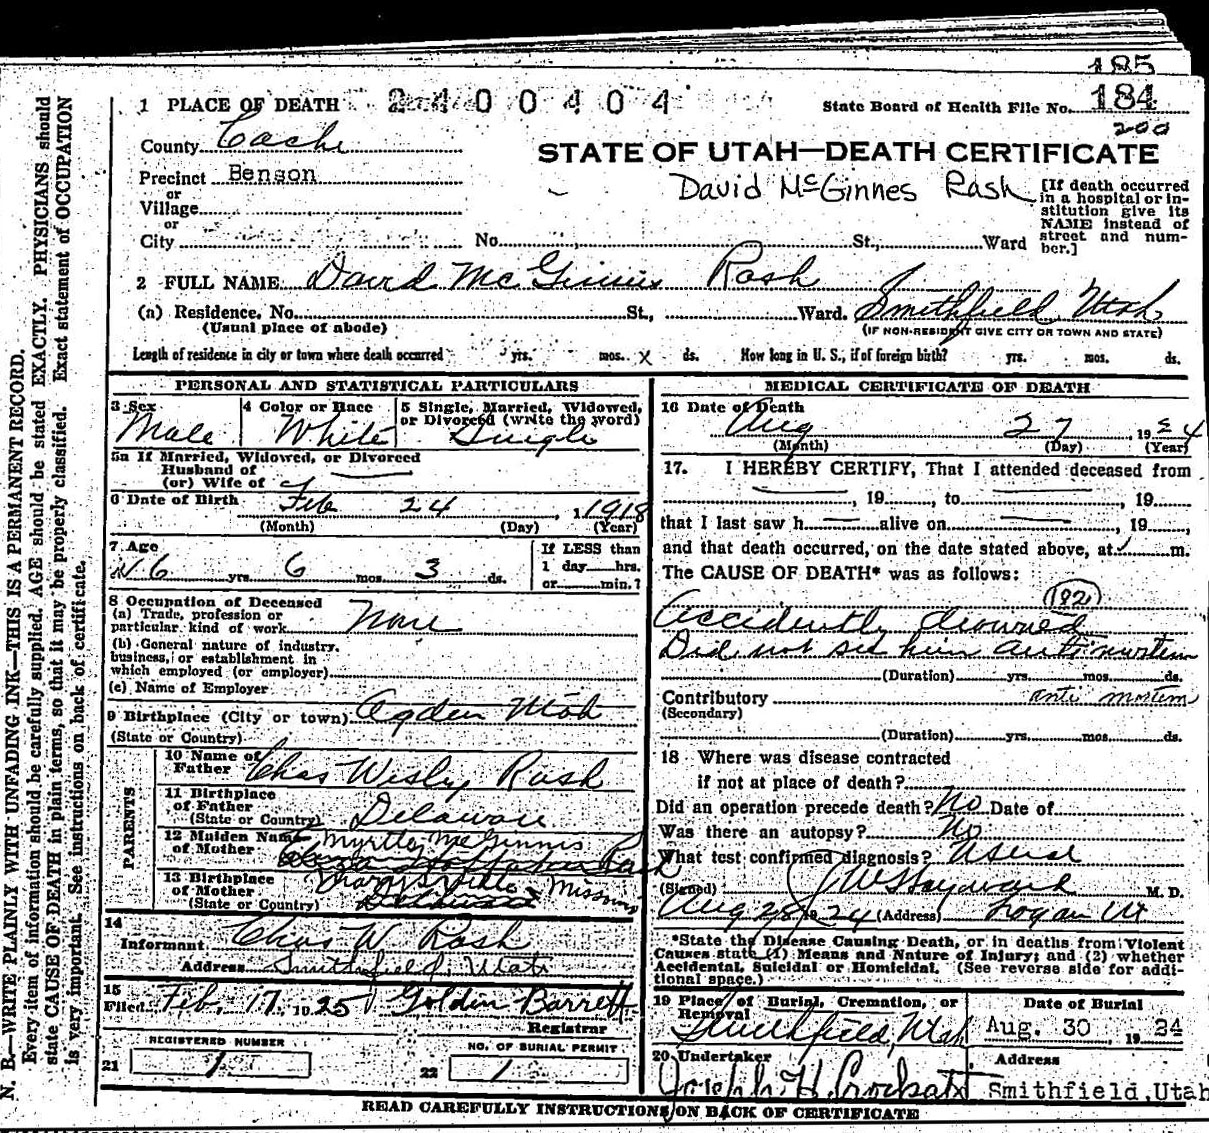 185
1 PLACE OF DEATH 2400404 State Board of Health File No. 184
200
County Cache
STATE OF UTAH—DEATH CERTIFICATE
Precinct Benson
or
Village
or
City No. St., Ward
David McGinnes Rash
[If death occurred in a hospital or in-
stitution give its
NAME instead of
street and num-
ber.]
2 FULL NAME David McGinnis Rash
(a) Residence. No. St., Ward. Smithfield, Utah
(Usual place of abode) (IF NON-RESIDENT GIVE CITY OR TOWN AND STATE)
Length of residence in city or town where death occurred yrs. mos. X ds. How long in U. S., if of foreign birth? yrs. mos. ds.
PERSONAL AND STATISTICAL PARTICULARS
3 Sex 4 Color or Race 5 Single, Married, Widowed,
or Divorced (write the word)
Male White Single
5a If Married, Widowed, or Divorced
Husband of
(or) Wife of
6 Date of Birth Feb 24, 1918
(Month) (Day) (Year)
7 Age
6 yrs. 6 mos. 3 ds.
If LESS than
1 day hrs.
or min.?
8 Occupation of Deceased
(a) Trade, profession or
particular kind of work None
(b) General nature of industry,
business, or establishment in
which employed (or employer)
(c) Name of Employer
9 Birthplace (City or town) Ogden Utah
(State or Country)
PARENTS
10 Name of
Father Chas Wesly Rash
11 Birthplace
of Father
(State or Country) Delaware
12 Maiden Name
of Mother Myrtle McGinnis
13 Birthplace
of Mother
(State or Country) Missouri
14
Informant Chas W. Rash
Address Smithfield, Utah
15
Filed Feb, 17, 1925 Golden Barrett
Registrar
REGISTERED NUMBER NO. OF BURIAL PERMIT
21 1 22 1
MEDICAL CERTIFICATE OF DEATH
16 Date of Death
Aug 27, 1924
(Month) (Day) (Year)
17. I HEREBY CERTIFY, That I attended deceased from
19 , to , 19
that I last saw h alive on , 19 ,
and that death occurred, on the date stated above, at m.
The CAUSE OF DEATH* was as follows:
(182)
Accidently drowned
Did not see him anti mortem
(Duration) yrs. mos. ds.
Contributory anti mortem
(Secondary)
(Duration) yrs. mos. ds.
18 Where was disease contracted
if not at place of death?
Did an operation precede death? No Date of
Was there an autopsy? No
What test confirmed diagnosis? Usual
(Signed) J W Hayward M. D.
Aug 28, 1924 (Address) Logan Ut
*State the Disease Causing Death, or in deaths from Violent
Causes state (1) Means and Nature of Injury; and (2) whether
Accidental, Suicidal or Homicidal. (See reverse side for addi-
tional space.)
19 Place of Burial, Cremation, or
Removal
Smithfield, Utah
Date of Burial
Aug. 30 , 19 24
20 Undertaker Address
Joseph H. Smithfield, Utah
READ CAREFULLY INSTRUCTIONS ON BACK OF CERTIFICATE
N. B.—WRITE PLAINLY WITH UNFADING INK—THIS IS A PERMANENT RECORD.
Every item of information should be carefully supplied. AGE should be stated EXACTLY. PHYSICIANS should
state CAUSE OF DEATH in plain terms, so that it may be properly classified. Exact statement of OCCUPATION
is very important. See instructions on back of certificate.